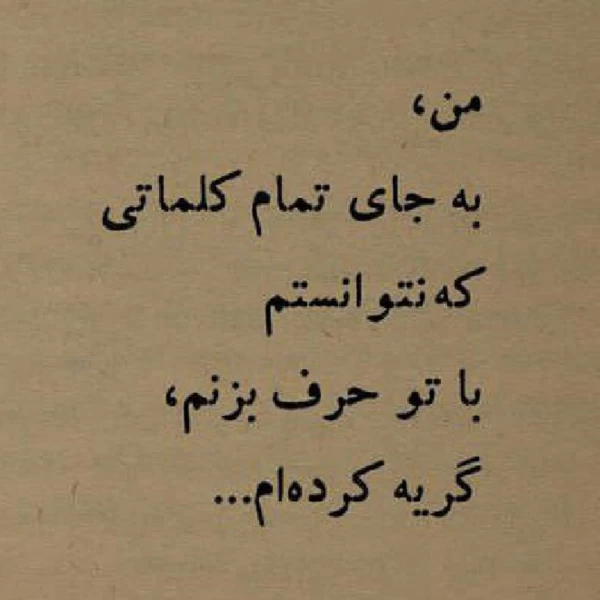 من،
به جای تمام کلماتی
که نتوانستم
با تو حرف بزنم،
گریه کرده‌ام...